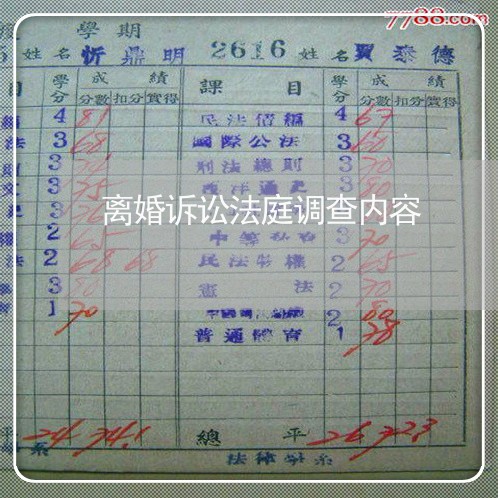 7788.com
學期
5 姓名 忻鼎明 2616 姓名 賈泰德
目 學分 成績 課目 學分 成績
分數 扣分 實得 分數 扣分 實得
4 81 民法債編 4 67
法 3 68 國際公法 3 60
3 刑法總則 3 70
文 3 75 西洋通史 3 80
离婚诉讼法庭调查内容
2 65 3 70
法 2 68 68 民法物權 2 65
3 80 憲法 2 70
1 70 2 80
普通體育 1 78
平 24 74.1 總平 26 72.3
系 法律學系